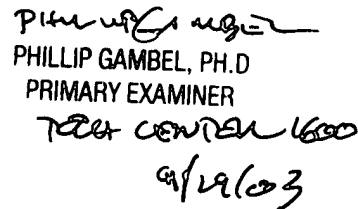 PHILLIP GAMBEL
PHILLIP GAMBEL, PH.D
PRIMARY EXAMINER
TECH CENTER 1600
9/29/03